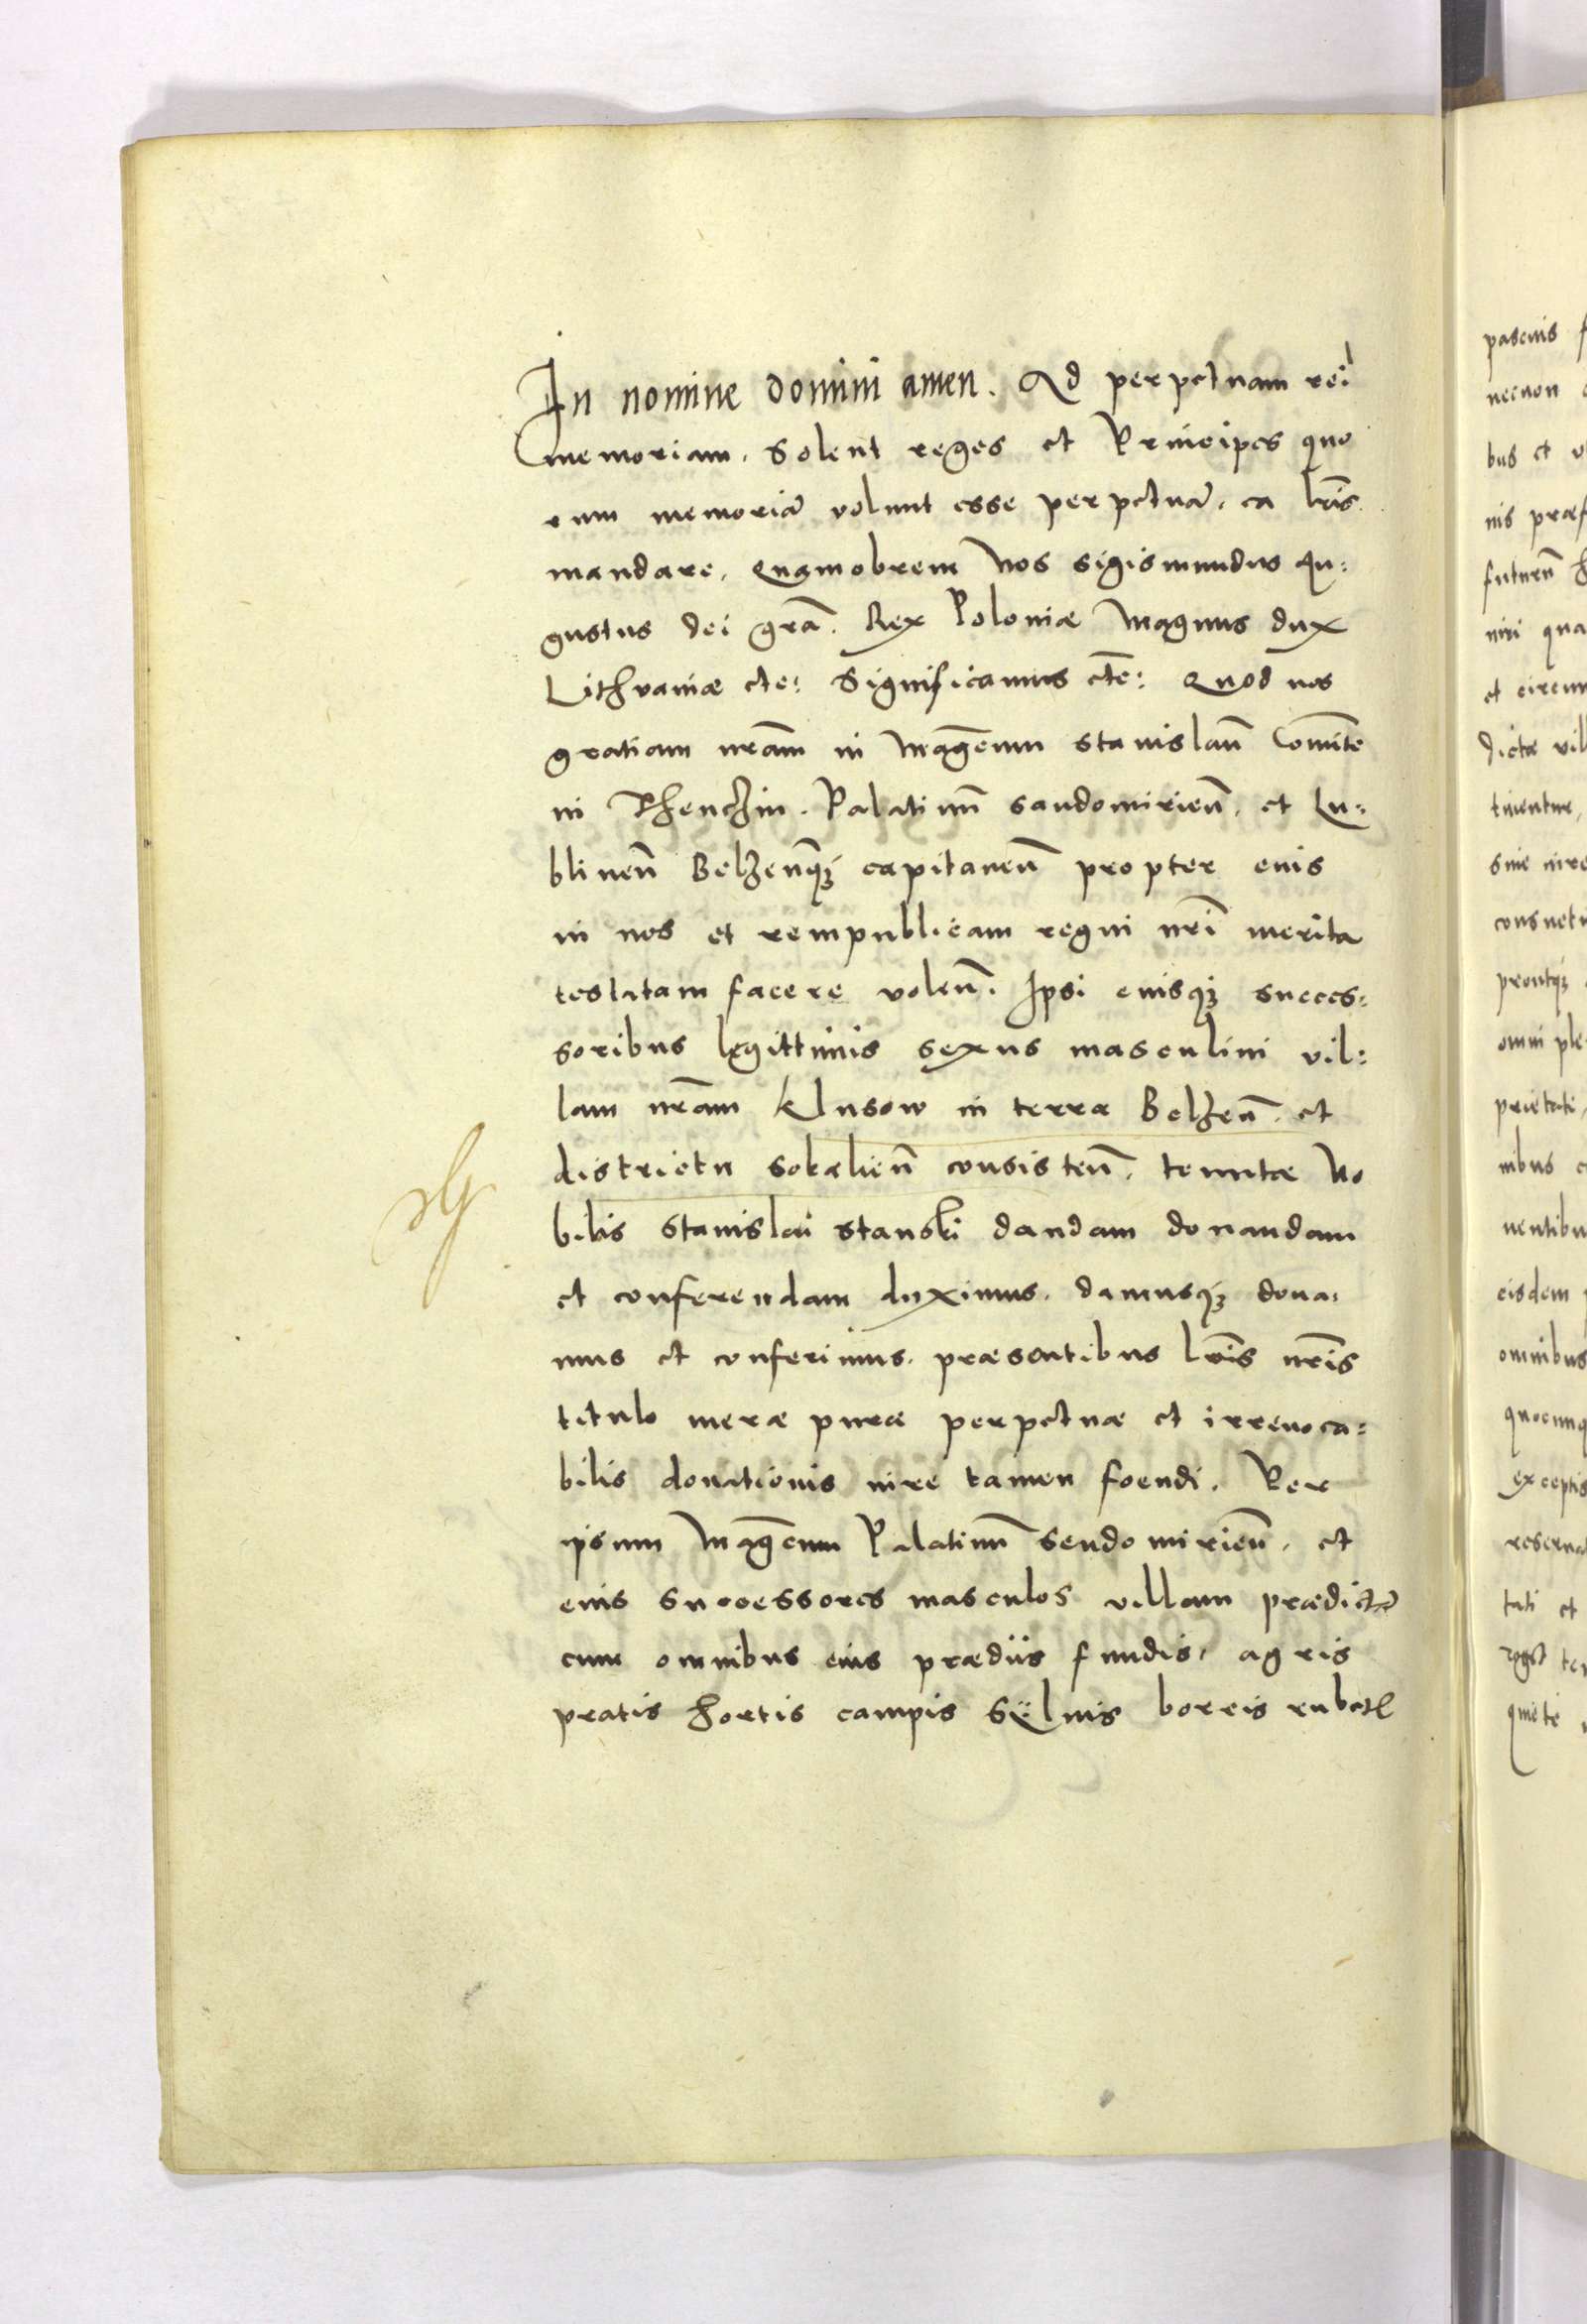 In nomine domini amen. Ad perpetuam rei
memoriam. Solent reges et Principes quo
rum memoriã volunt esse perpetuã. ea lr̃is
mandare. Quamobrem Nos Sigismundus Au:
gustus dei gr̃a. Rex Poloniæ Magnus dux
Lithvaniæ etc: Significamus etc̃: Quod nos
gratiam nr̃am in Mag̃cum Stanislaũ Comitẽ
in Thenchin. Palatinũ Sandomirieñ. et Lu:
blineñ Belzeñqʒ capitaneũ propter eius
in nos et rempublicam regni nr̃i merita
testatam facere voleñ. Ipsi eiusqʒ succes:
soribus legittimis sexus masculini vil:
lam nr̃am Klusow in terra Belzeñ. et
districtu Sokalieñ consisteñ. tenutæ No
bilis Stanislai Stanski dandam donandam
et conferendam duximus. damusqʒ dona:
mus et conferimus. præsentibus lr̃is nr̃is
titulo meræ puræ perpetuæ et irrevoca:
bilis donationis iure tamen foendi. Per
ipsum Mag̃cum Palatinũ Sendomirieñ. et
eius successores masculos villam prædictã
cum omnibus eius prædiis fundis. agris
pratis hortis campis sÿluis borris rubet
pascuis
necnon
bus et
nis
futurũ
niri
et
dictæ
tinentur,
sine
proutqʒ
omni ple
prietati,
nibus
eisdem
omnibus
exceptis
tati et